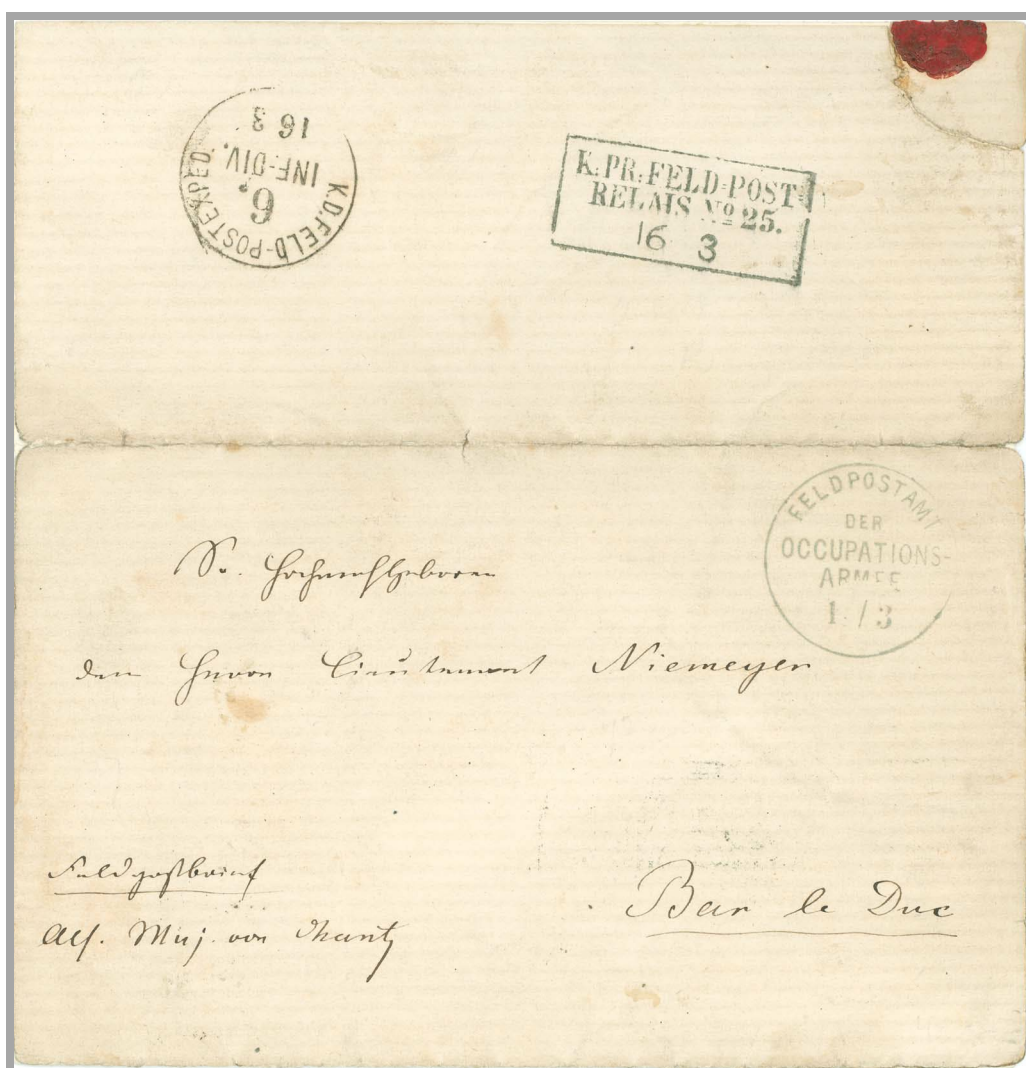 K.D.FELD-POSTEXPED.
6.
INF-DIV.
16 3
K:PR:FELD=POST=
RELAIS No 25.
16 3
FELDPOSTAMT
DER
OCCUPATIONS-
ARMEE
1 / 3
Sr. Hochwohlgeboren
dem Herrn Lieutenant Niemeyer
Feldpostbrief
Bar le Duc
Abs. Maj. von